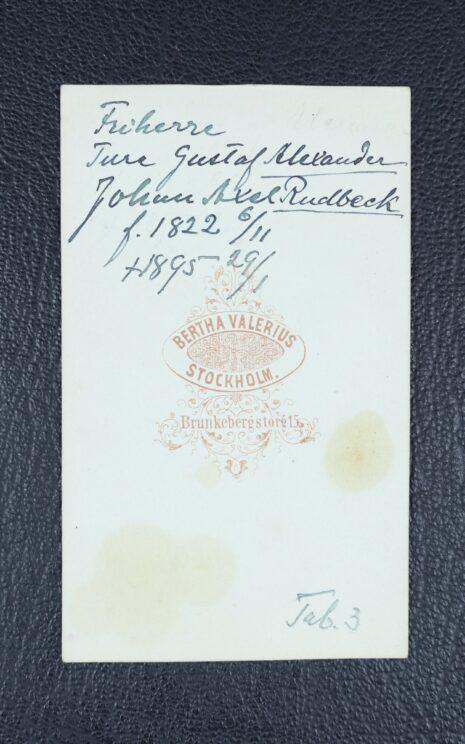 Friherre
Ture Gustaf Alexander
Johan Axel Rudbeck
f. 1822 6/11
+1895 29/1
BERTHA VALERIUS
STOCKHOLM.
Brunkebergstorg 15.
Tab. 3